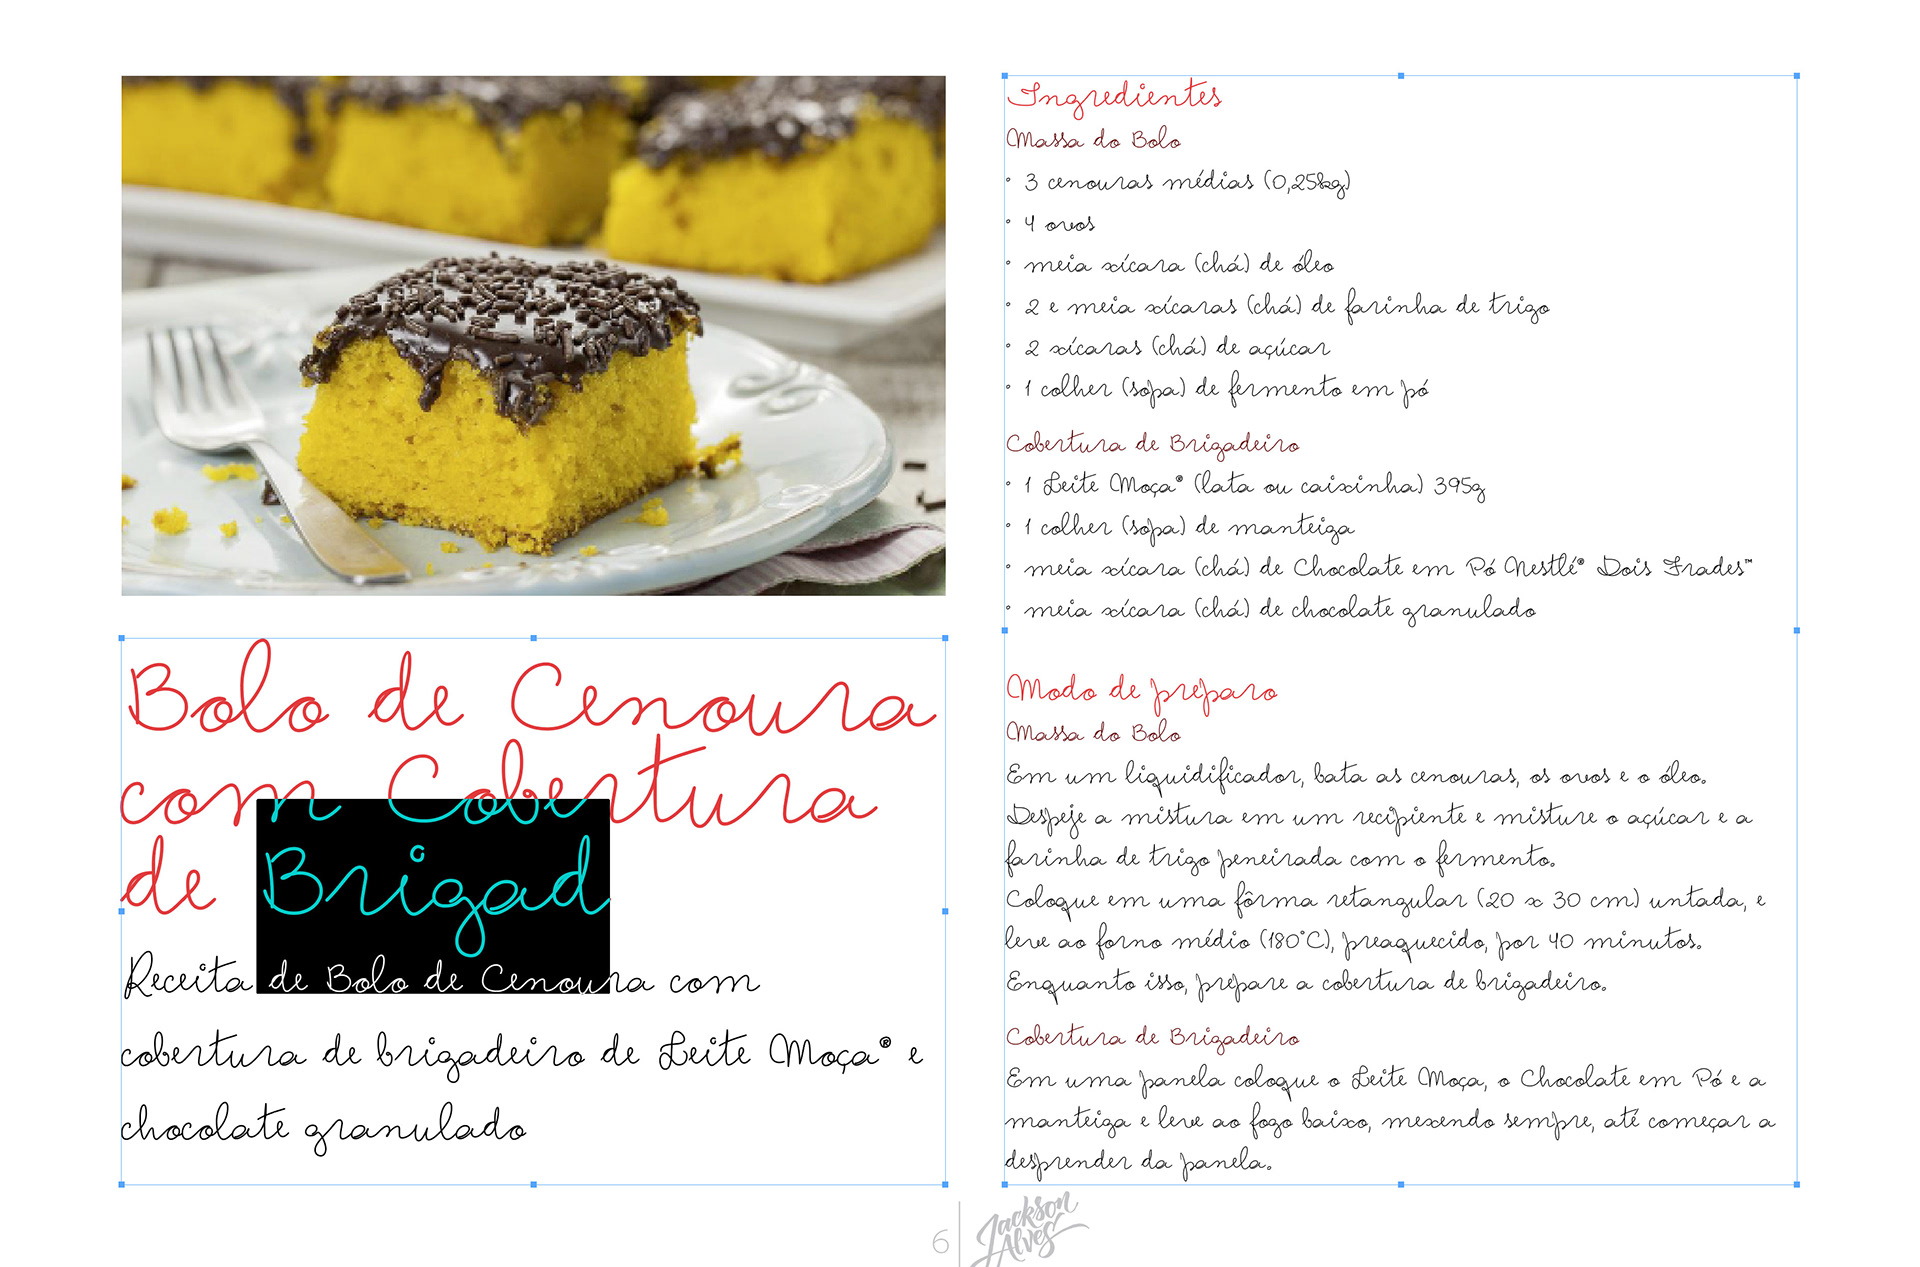 Bolo de Cenoura
com Cobertura
de Brigad
Receita de Bolo de Cenoura com
cobertura de brigadeiro de Leite Moça® e
chocolate granulado
Ingredientes
Massa do Bolo
• 3 cenouras médias (0,25kg)
• 4 ovos
• meia xícara (chá) de óleo
• 2 e meia xícaras (chá) de farinha de trigo
• 2 xícaras (chá) de açúcar
• 1 colher (sopa) de fermento em pó
Cobertura de Brigadeiro
• 1 Leite Moça® (lata ou caixinha) 395g
• 1 colher (sopa) de manteiga
• meia xícara (chá) de Chocolate em Pó Nestlé® Dois Frades™
• meia xícara (chá) de chocolate granulado
Modo de preparo
Massa do Bolo
Em um liquidificador, bata as cenouras, os ovos e o óleo.
Despeje a mistura em um recipiente e misture o açúcar e a
farinha de trigo peneirada com o fermento.
Coloque em uma fôrma retangular (20 x 30 cm) untada, e
leve ao forno médio (180°C), preaquecido, por 40 minutos.
Enquanto isso, prepare a cobertura de brigadeiro.
Cobertura de Brigadeiro
Em uma panela coloque o Leite Moça, o Chocolate em Pó e a
manteiga e leve ao fogo baixo, mexendo sempre, até começar a
desprender da panela.
6
Jackson
Alves